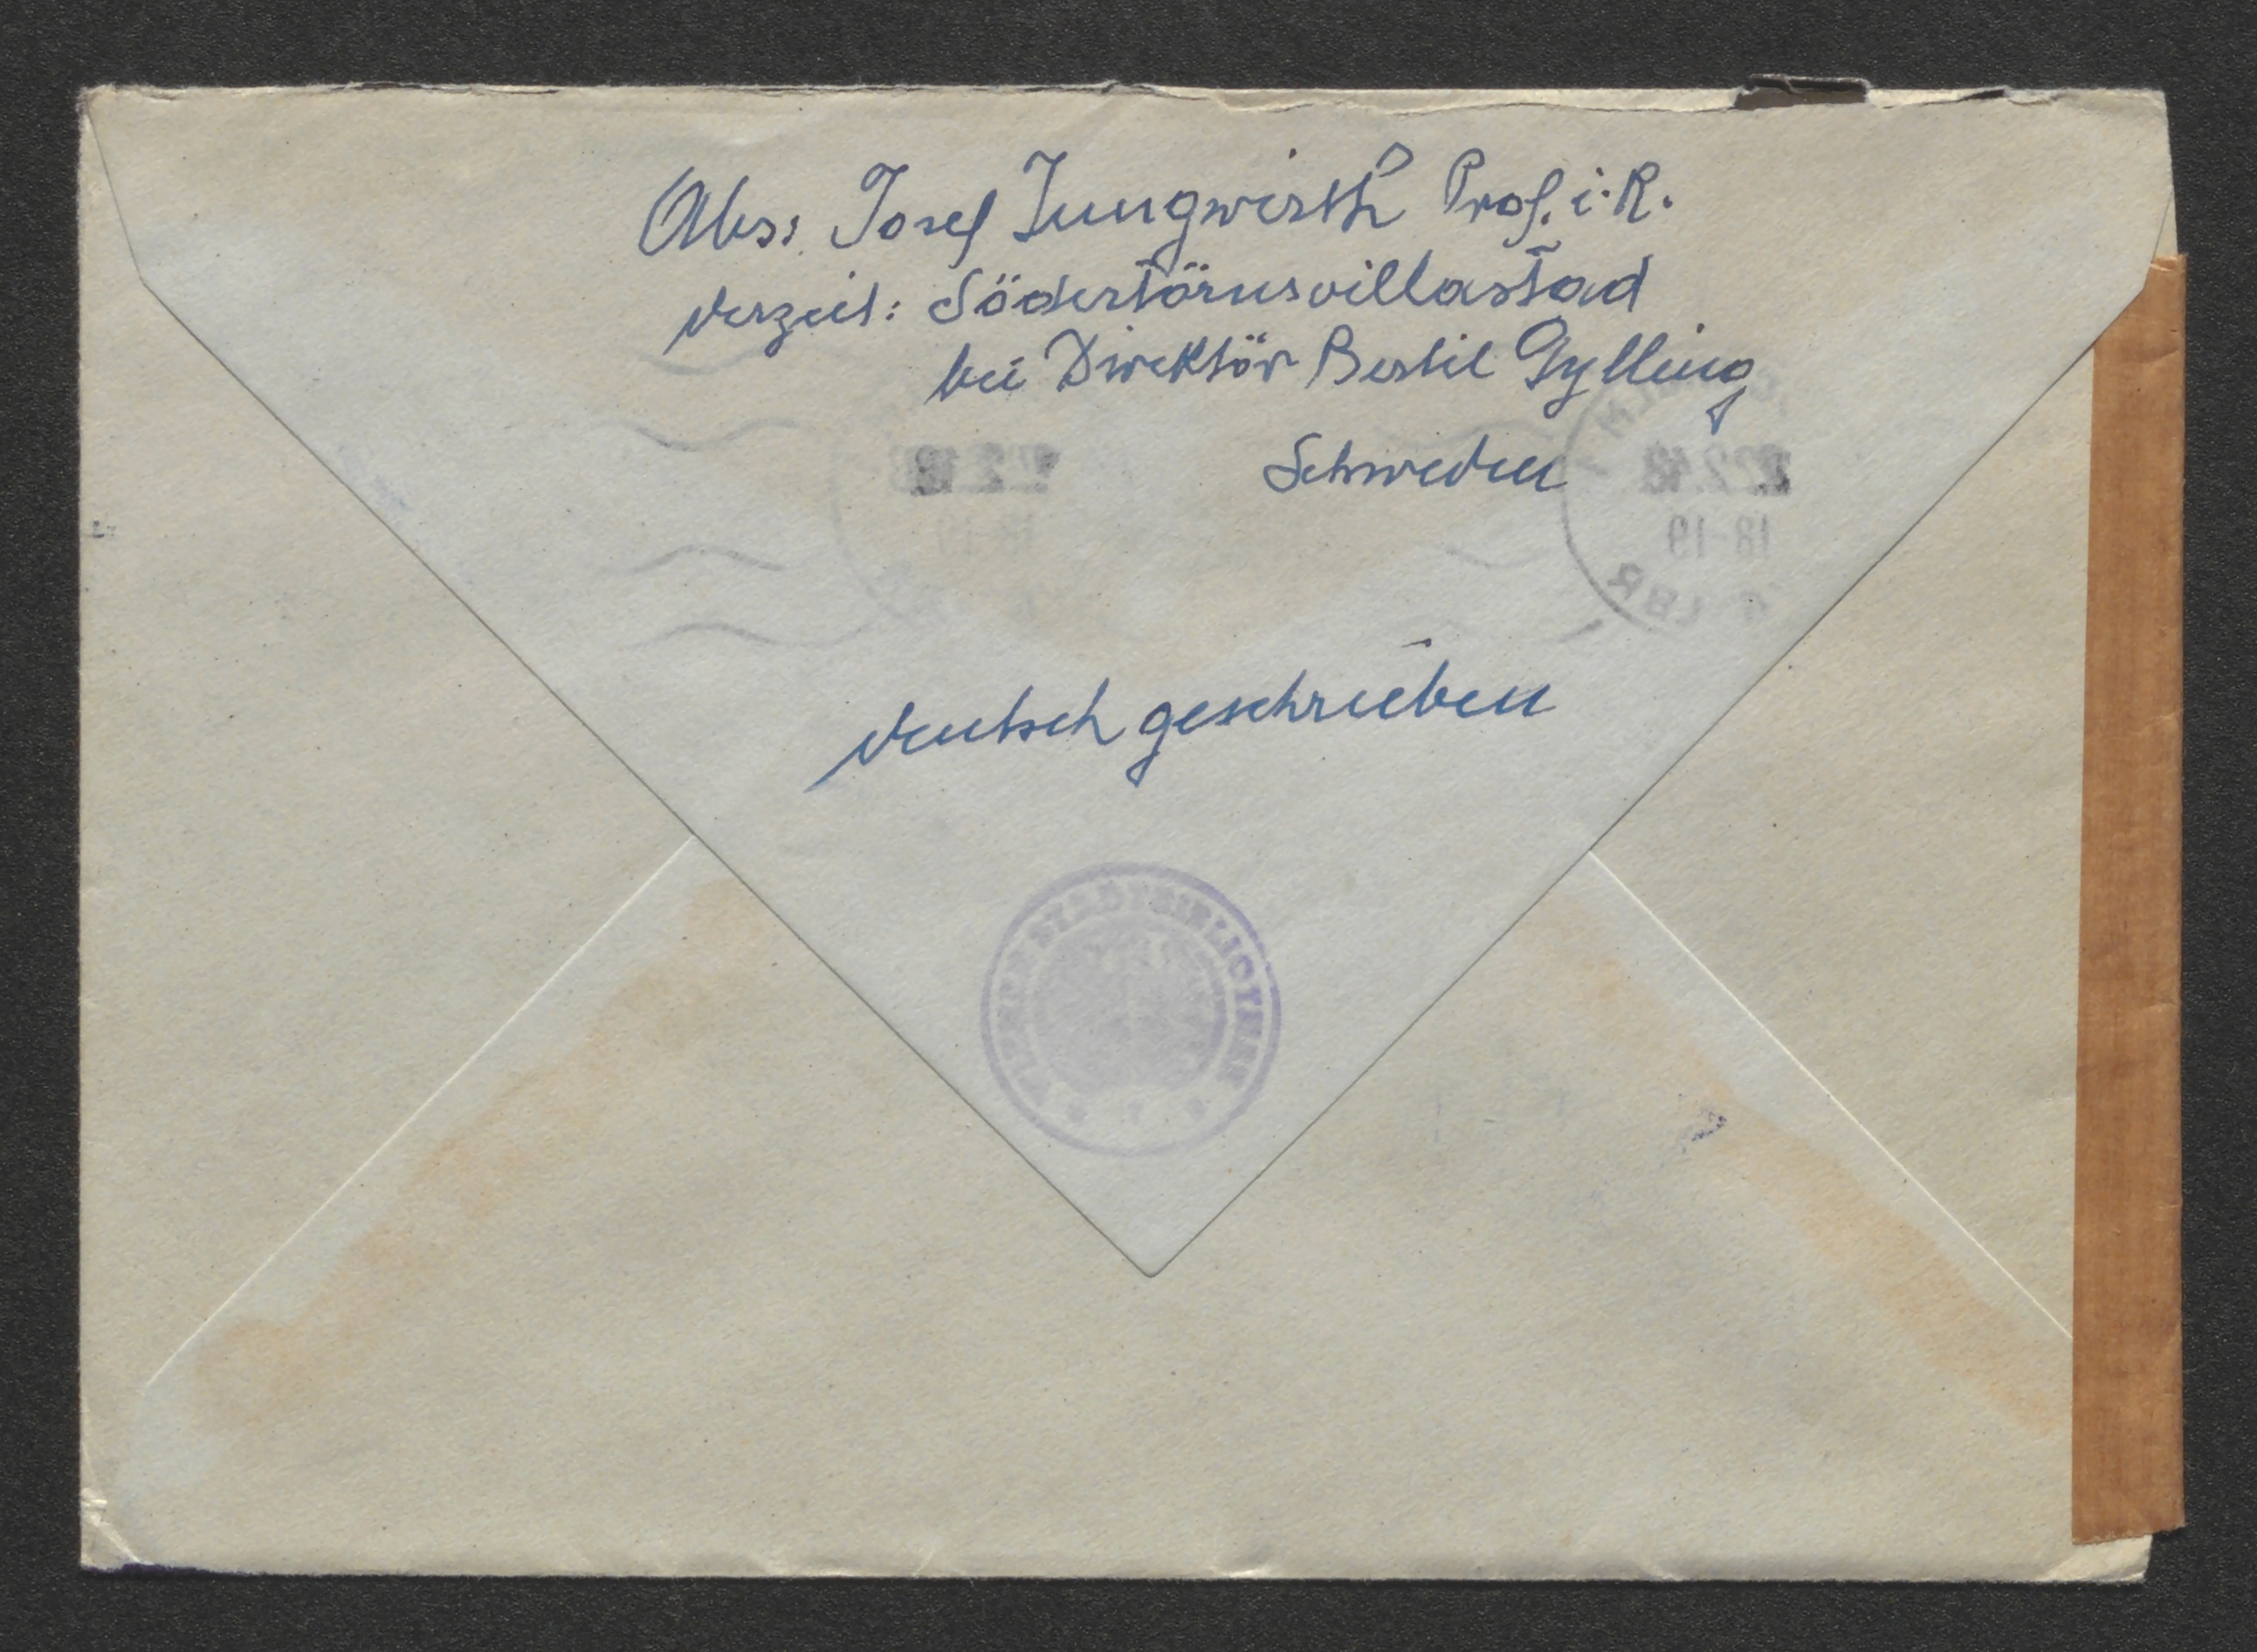 Abs: Josef Jungwirth Prof. i. R.
derzeit: Södertörnsvillastad
bei Direktör Bertil Gylling
Schweden
22.2.48
18-19
deutsch geschrieben
WIENER STADTBIBLIOTHEK